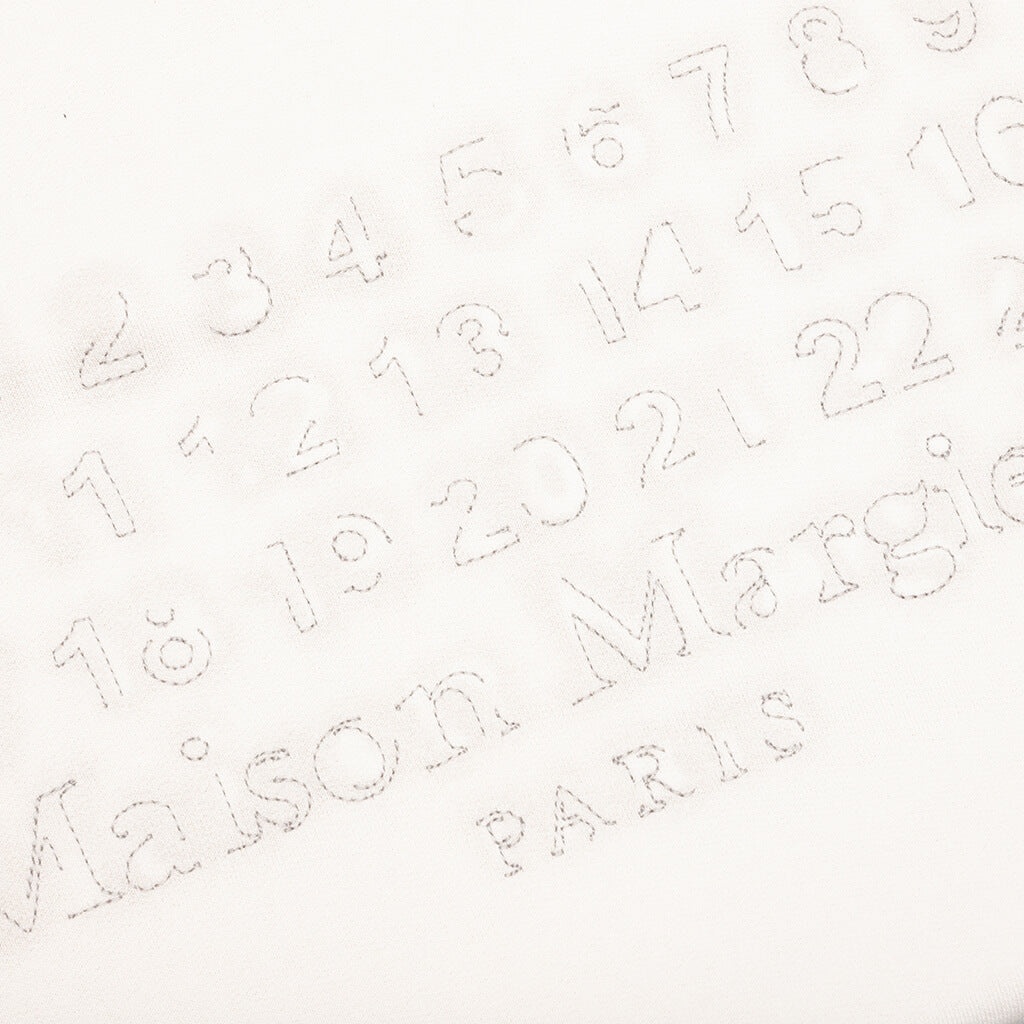 2 3 4 5 6 7 8 9
1 12 13 14 15 16
18 19 20 21 22
Maison Margie
PARIS